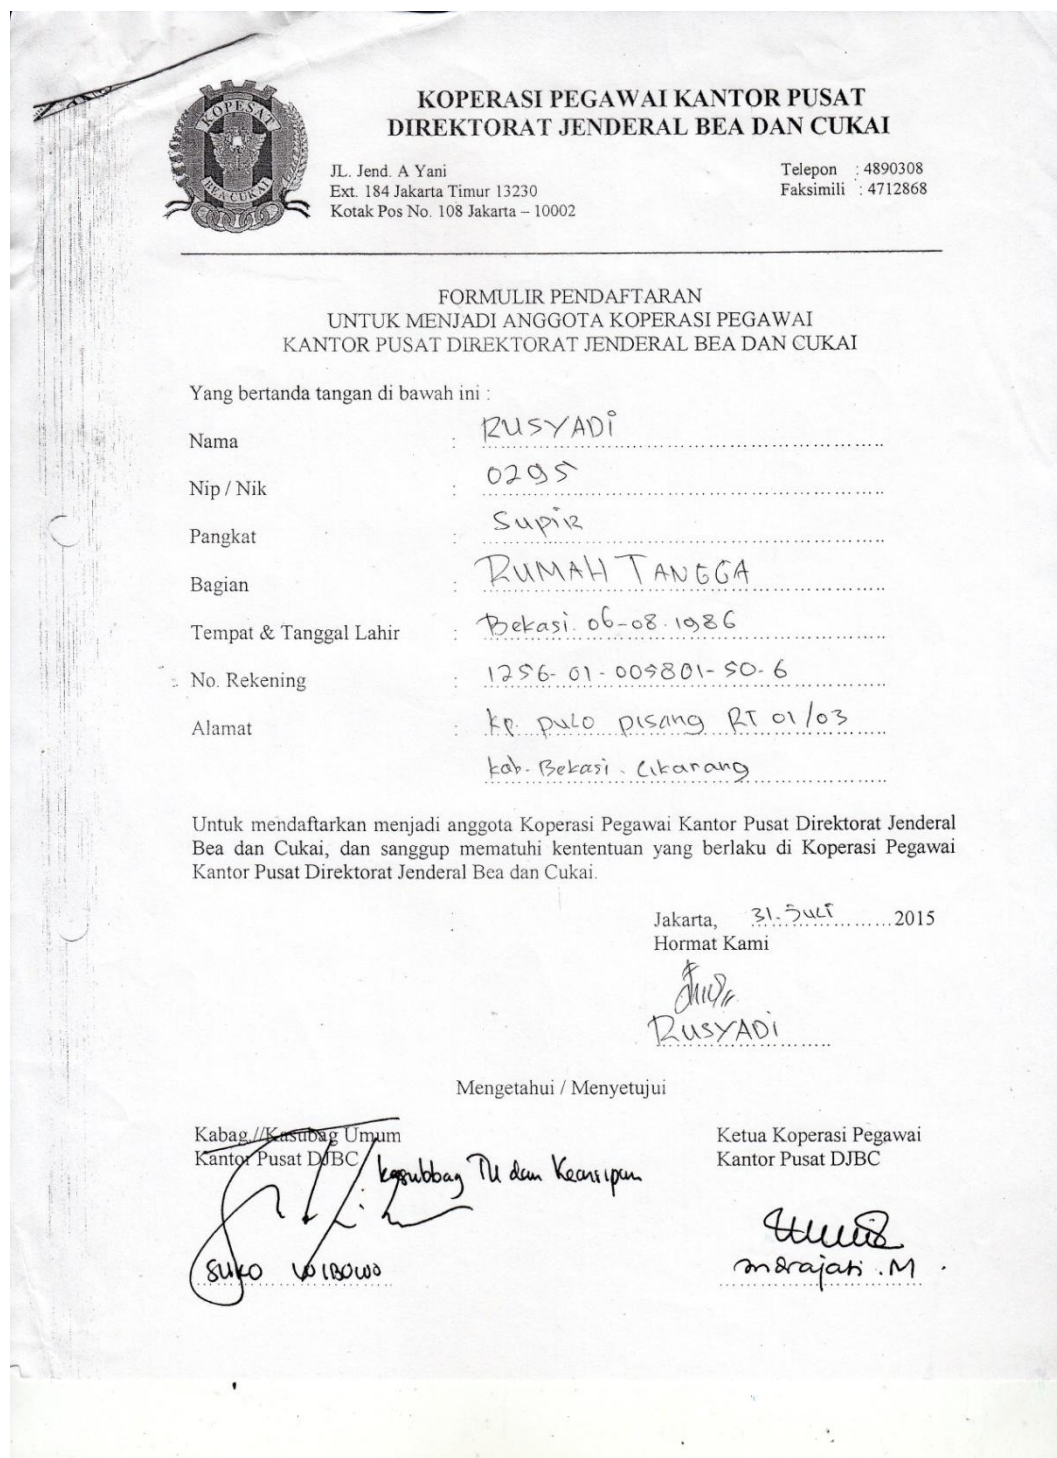 KOPESAT
BEA CUKAI
KOPERASI PEGAWAI KANTOR PUSAT
DIREKTORAT JENDERAL BEA DAN CUKAI
JL. Jend. A Yani
Ext. 184 Jakarta Timur 13230
Kotak Pos No. 108 Jakarta – 10002
Telepon : 4890308
Faksimili : 4712868
FORMULIR PENDAFTARAN
UNTUK MENJADI ANGGOTA KOPERASI PEGAWAI
KANTOR PUSAT DIREKTORAT JENDERAL BEA DAN CUKAI
Yang bertanda tangan di bawah ini :
Nama : RUSYADI
Nip / Nik : 0295
Pangkat : Supir
Bagian : RUMAH TANGGA
Tempat & Tanggal Lahir : Bekasi. 06-08-1986
No. Rekening : 1256-01-005801-50-6
Alamat : kp. pulo pisang RT 01/03
kab. Bekasi. Cikarang
Untuk mendaftarkan menjadi anggota Koperasi Pegawai Kantor Pusat Direktorat Jenderal
Bea dan Cukai, dan sanggup mematuhi kententuan yang berlaku di Koperasi Pegawai
Kantor Pusat Direktorat Jenderal Bea dan Cukai.
Jakarta, 31. Juli 2015
Hormat Kami
RUSYADI
Mengetahui / Menyetujui
Kabag //Kasubag Umum
Kantor Pusat DJBC
kasubbag TU dan Kearsipan
SUKO WIBOWO
Ketua Koperasi Pegawai
Kantor Pusat DJBC
Indrajati . M